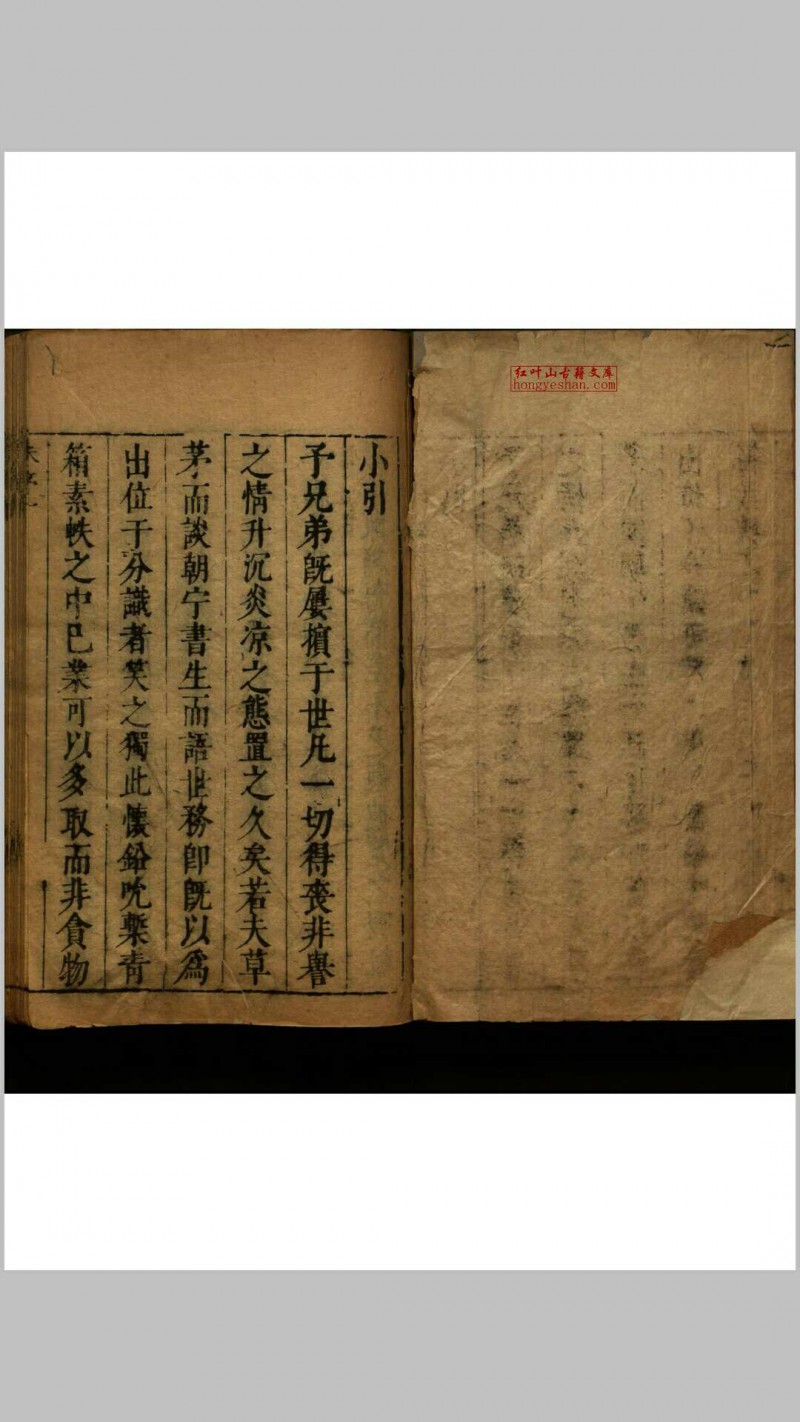 小引
予兄弟既屡擯于世凡一切得丧非譽
之情升沉炎凉之態置之久矣若夫草
茅而談朝宁書生而語世務即既以爲
出位于分識者笑之獨此懷鉛吮槧青
箱素帙之中巳業可以多取而非貪物
红叶山古籍文库
hongyeshan.com